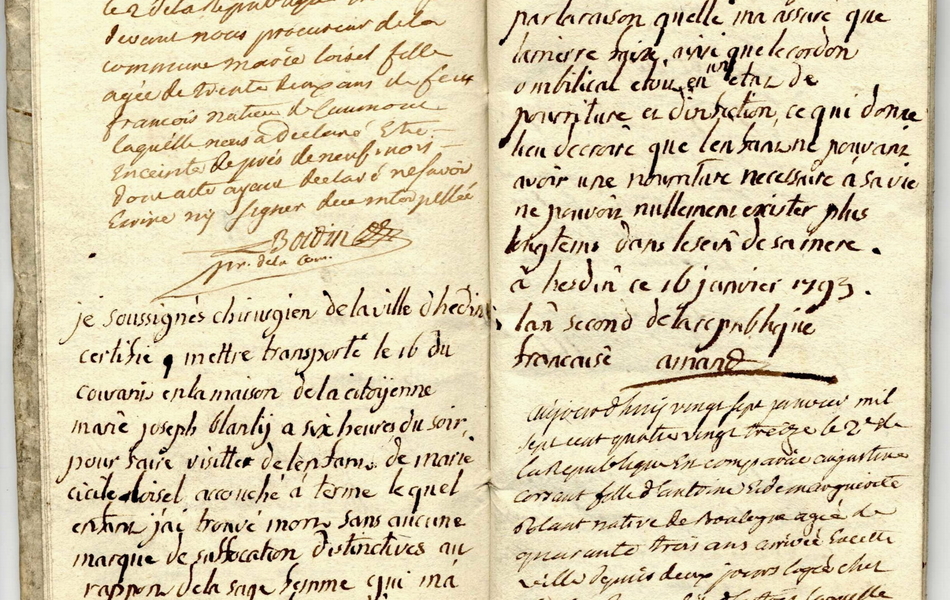 le 2 de la Republique
devant nous procureur de la
commune marie loisel fille
agée de trente deux ans de feux
francois native de
laquelle nous a declaré Etre
Enceinte de prés de neuf mois
dont acte ayant declaré ne savoir
Ecrire ny signer de ce interpellée
Boidin
pr. de la Com.
je soussignés chirurgien de la ville d hedin
certifie mettre transporté le 16 du
courant en la maison de la citoyenne
marie joseph blanly a six heures du soir
pour faire visitter de lenfant de marie
cicile loisel accouché à terme le quel
enfant j'ai trouvé mort sans aucune
marque de suffocation distinctives au
rapport de la sage femme qui m'a
par la raison quelle ma assuré que
larriere faixe, aisi que le cordon
ombilical etoit en un etat de
pourriture et dinfection, ce qui donne
lieu de croire que lenfant ne pouvant
avoir une nourriture necessaire a sa vie
ne pouvoit nullement exister plus
longtems dans le sein de sa mere.
à hesdin ce 16 janvier 1793.
lan second de la republique
francaise amand
aujourd'huy vingt sept janvier mil
sept cent quatre vingt treize le 2e de
la Republique Est comparüe augustine
fille d'antoine et de marguerite
native de Boulogne agée de
quarante trois ans arrivée En cette
ville depuis deux jours logée chez